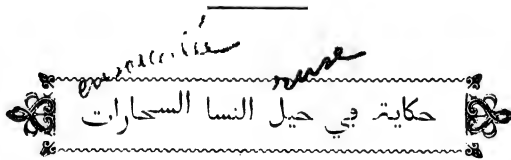 ruse
حكاية في حيل النسا السحارات